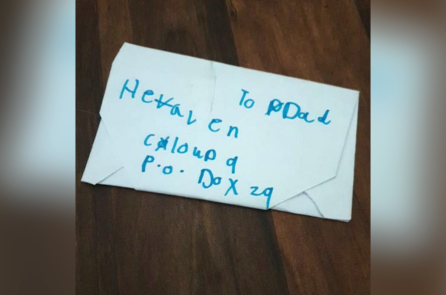 To Dad
Hevaven
cloud 9
P.O. Dox 29